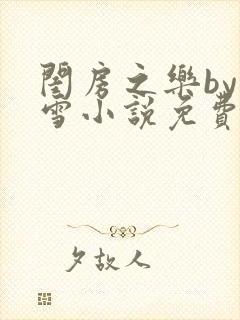 閨房之樂by
雪小說免費
夕故人